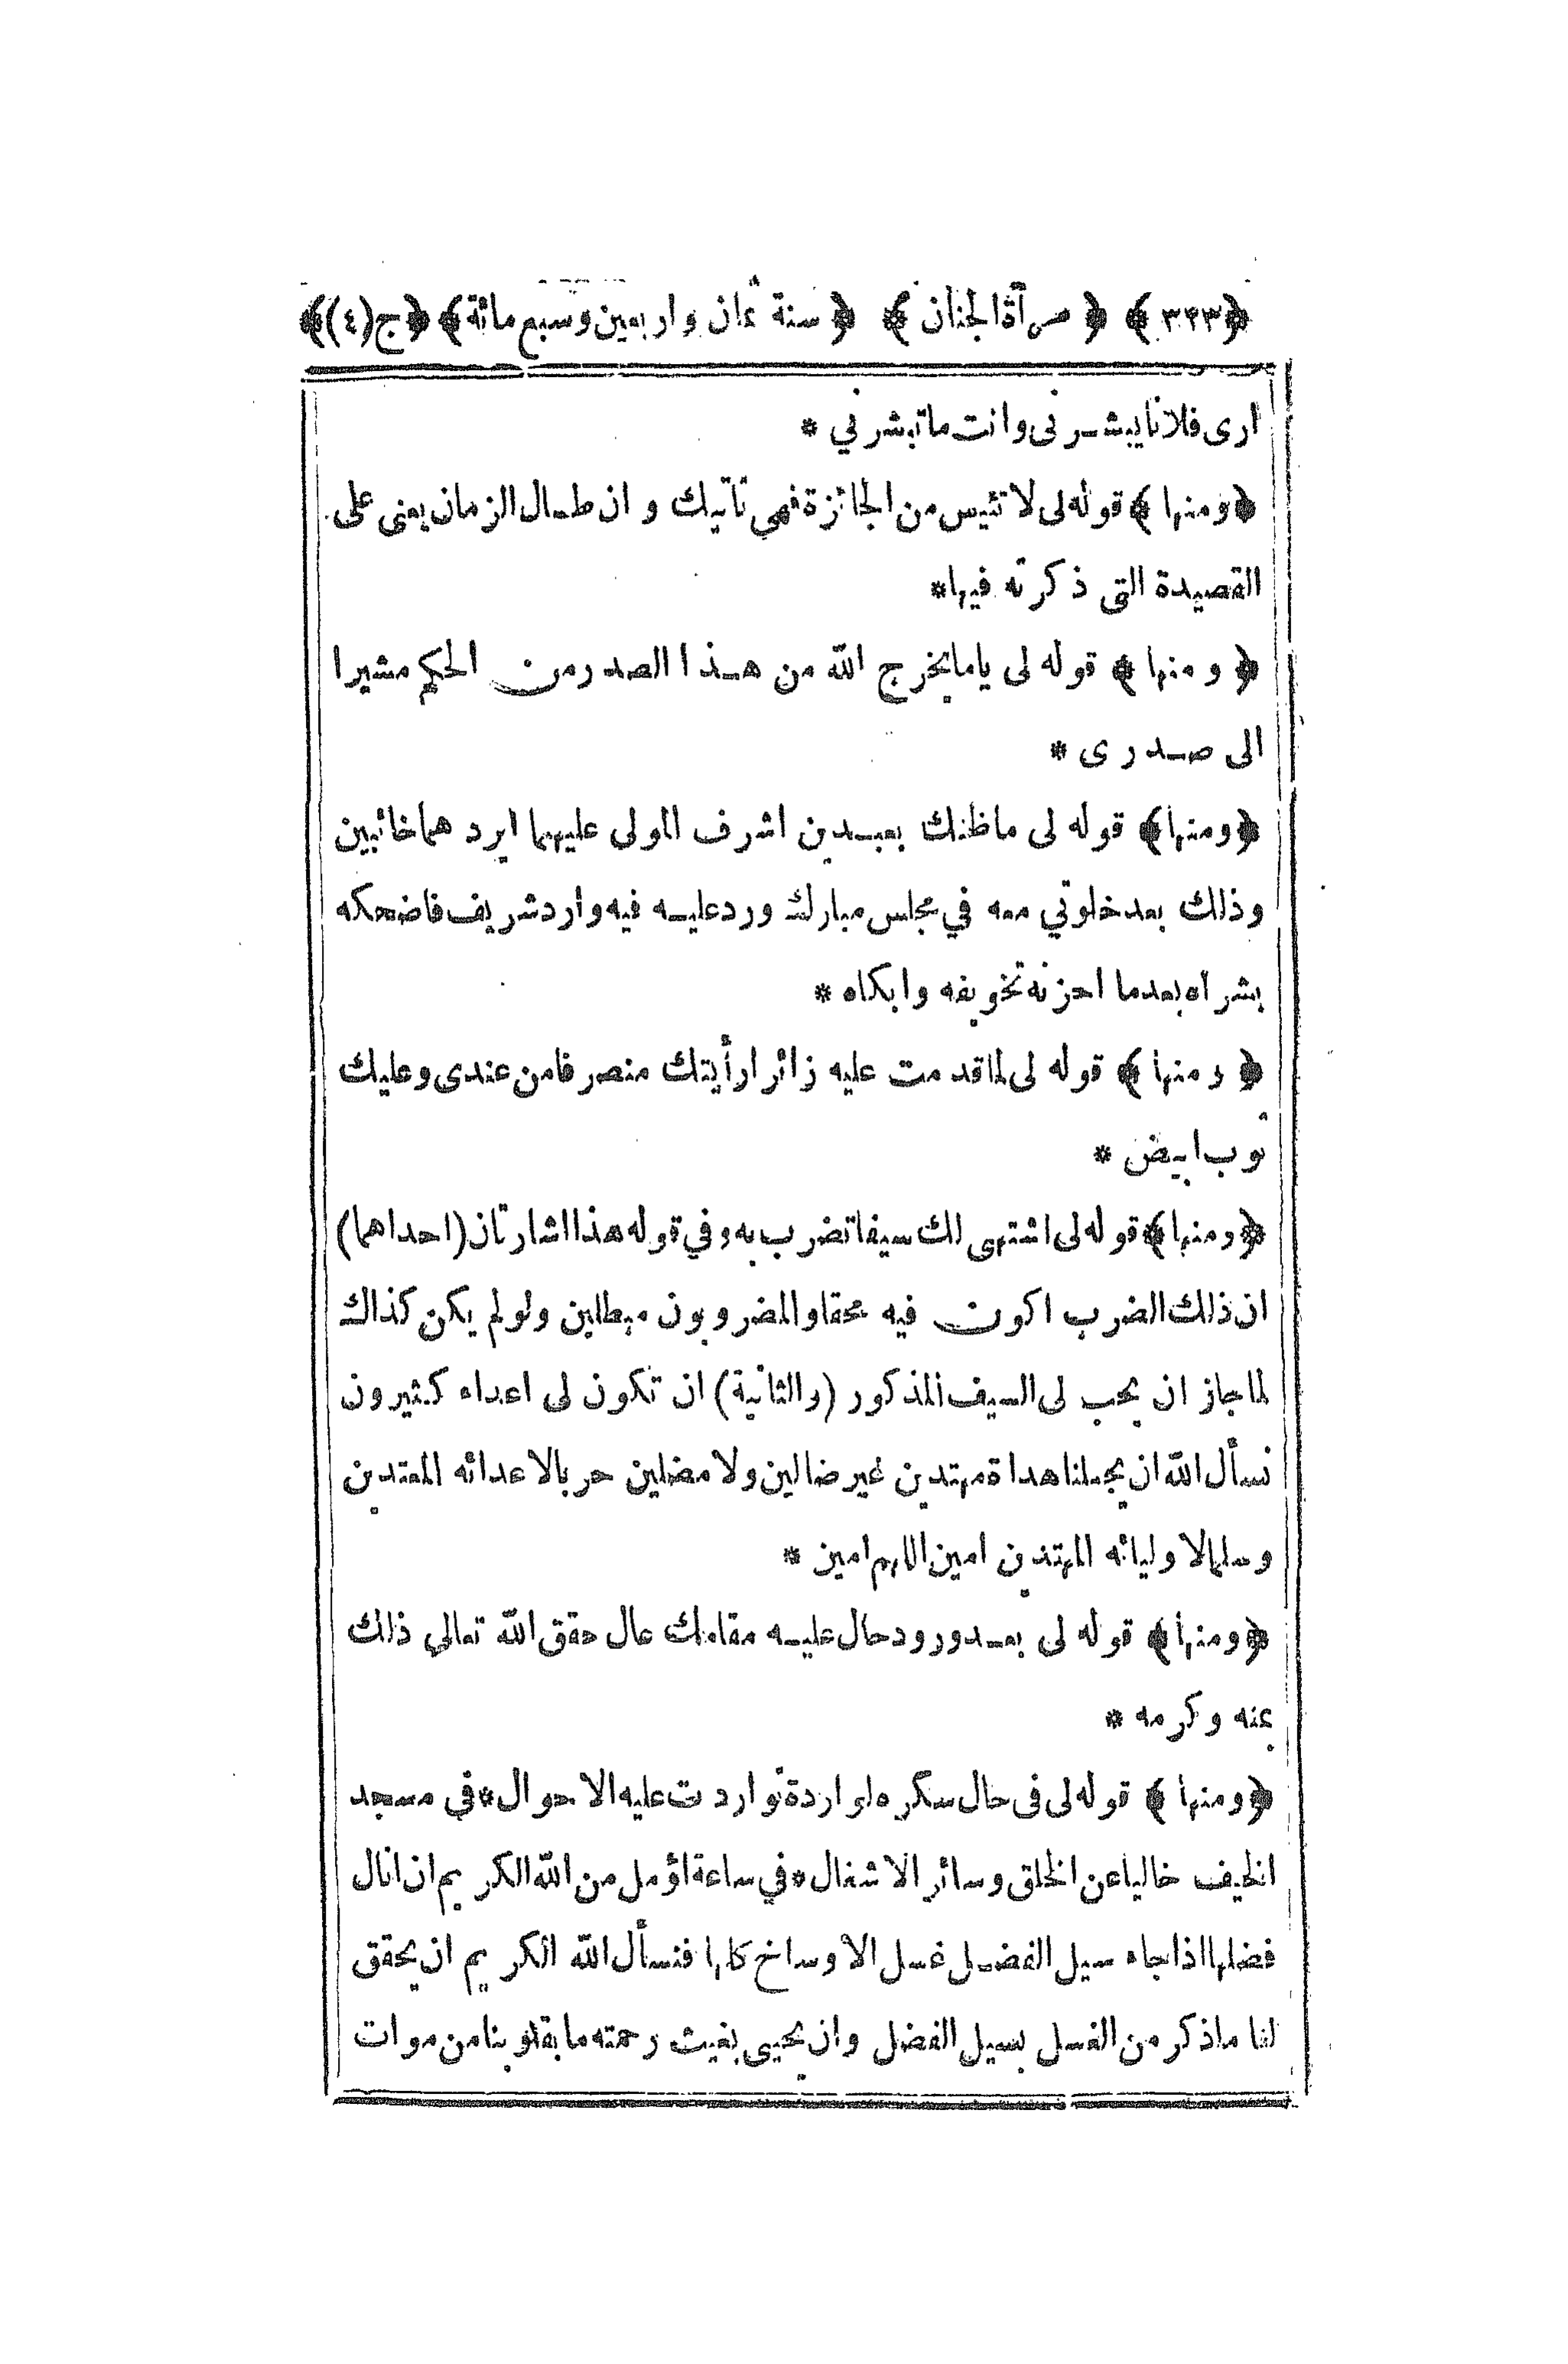 ﴿٣٤٣﴾ ﴿مرآة الجنان﴾ ﴿سنة ثمان واربعين وسبع مائة﴾ ﴿ج(٤)﴾
ارى فلانا يبشرنى وانت ما تبشرني *
﴿ومنها﴾ قوله لى لا تئيس من الجائزة فهي تاتيك وان طال الزمان يعنى على
القصيدة التى ذكرته فيها*
﴿ومنها﴾ قوله لى ياما يخرج الله من هذا الصدر من الحكم مشيرا
الى صدرى *
﴿ومنها﴾ قوله لى ما ظنك بعبدين اشرف المولى عليهما ايردهما خائبين
وذلك بعد خلوتي معه في مجلس مبارك ورد عليه فيه وارد شريف فاضحكه
بشراه بعدما احزنه تخويفه وابكاه *
﴿ومنها﴾ قوله لى لما قدمت عليه زائرا رأيتك منصرفا من عندى وعليك
ثوب ابيض *
﴿ومنها﴾ قوله لى اشتهى لك سيفا تضرب به وفي قوله هذا اشارتان (احداهما)
ان ذلك الضرب اكون فيه محقا والمضروبون مبطلين ولو لم يكن كذاك
لما جاز ان يحب لى السيف المذكور (والثانية) ان تكون لى اعداء كثيرون
نسأل الله ان يجعلنا هداة مهتدين غير ضالين ولا مضلين حربا لاعدائه المعتدين
وسلما لاوليائه المهتدين امين اللهم امين *
﴿ومنها﴾ قوله لى بعد ورود حال عليه مقامك عال حقق الله تعالي ذلك
بمنه وكرمه *
﴿ومنها﴾ قوله لى فى حال سكره لواردة تواردت عليه الاحوال*في مسجد
الخيف خاليا عن الخلق وسائر الاشغال*في ساعة اؤمل من الله الكريم ان انال
فضلها اذا جاء سيل الفضل غسل الاوساخ كلها فنسأل الله الكريم ان يحقق
لنا ما ذكر من الغسل بسيل الفضل وان يحيى بغيث رحمته ما بقلوبنا من موات